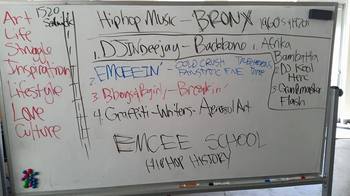 Art
Life
Struggle
Inspiration
Lifestyle
Love
Culture
1520
HipHop Music - BRONX 1960's + 1970's
1. DJIN Deejay - Backbone
2. EMCEEIN' COLD CRUSH
FANTASTIC FIVE
3. Bboys+Bgirls - Breakin'
4. Graffiti - Writers - Aerosol Art
1. Afrika
Bambatta
2. DJ Kool
Herc
3. Grandmaster
Flash
EMCEE SCHOOL
HIPHOP HISTORY